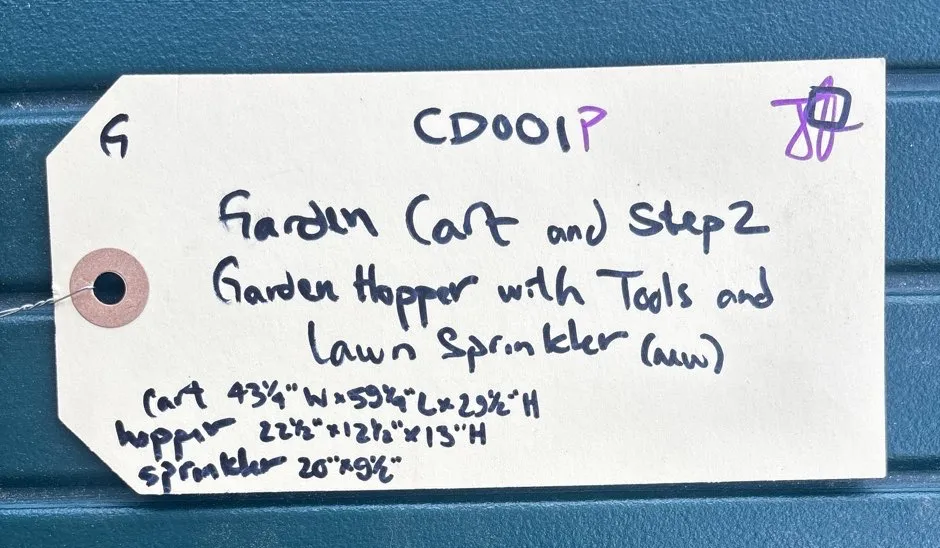 G
CD001P
Garden Cart and Step2
Garden Hopper with Tools and
Lawn Sprinkler
cart 43¼" W x 59¼" L x 29½" H
hopper 22½" x 12½" x 13" H
sprinkler 20" x 9½"